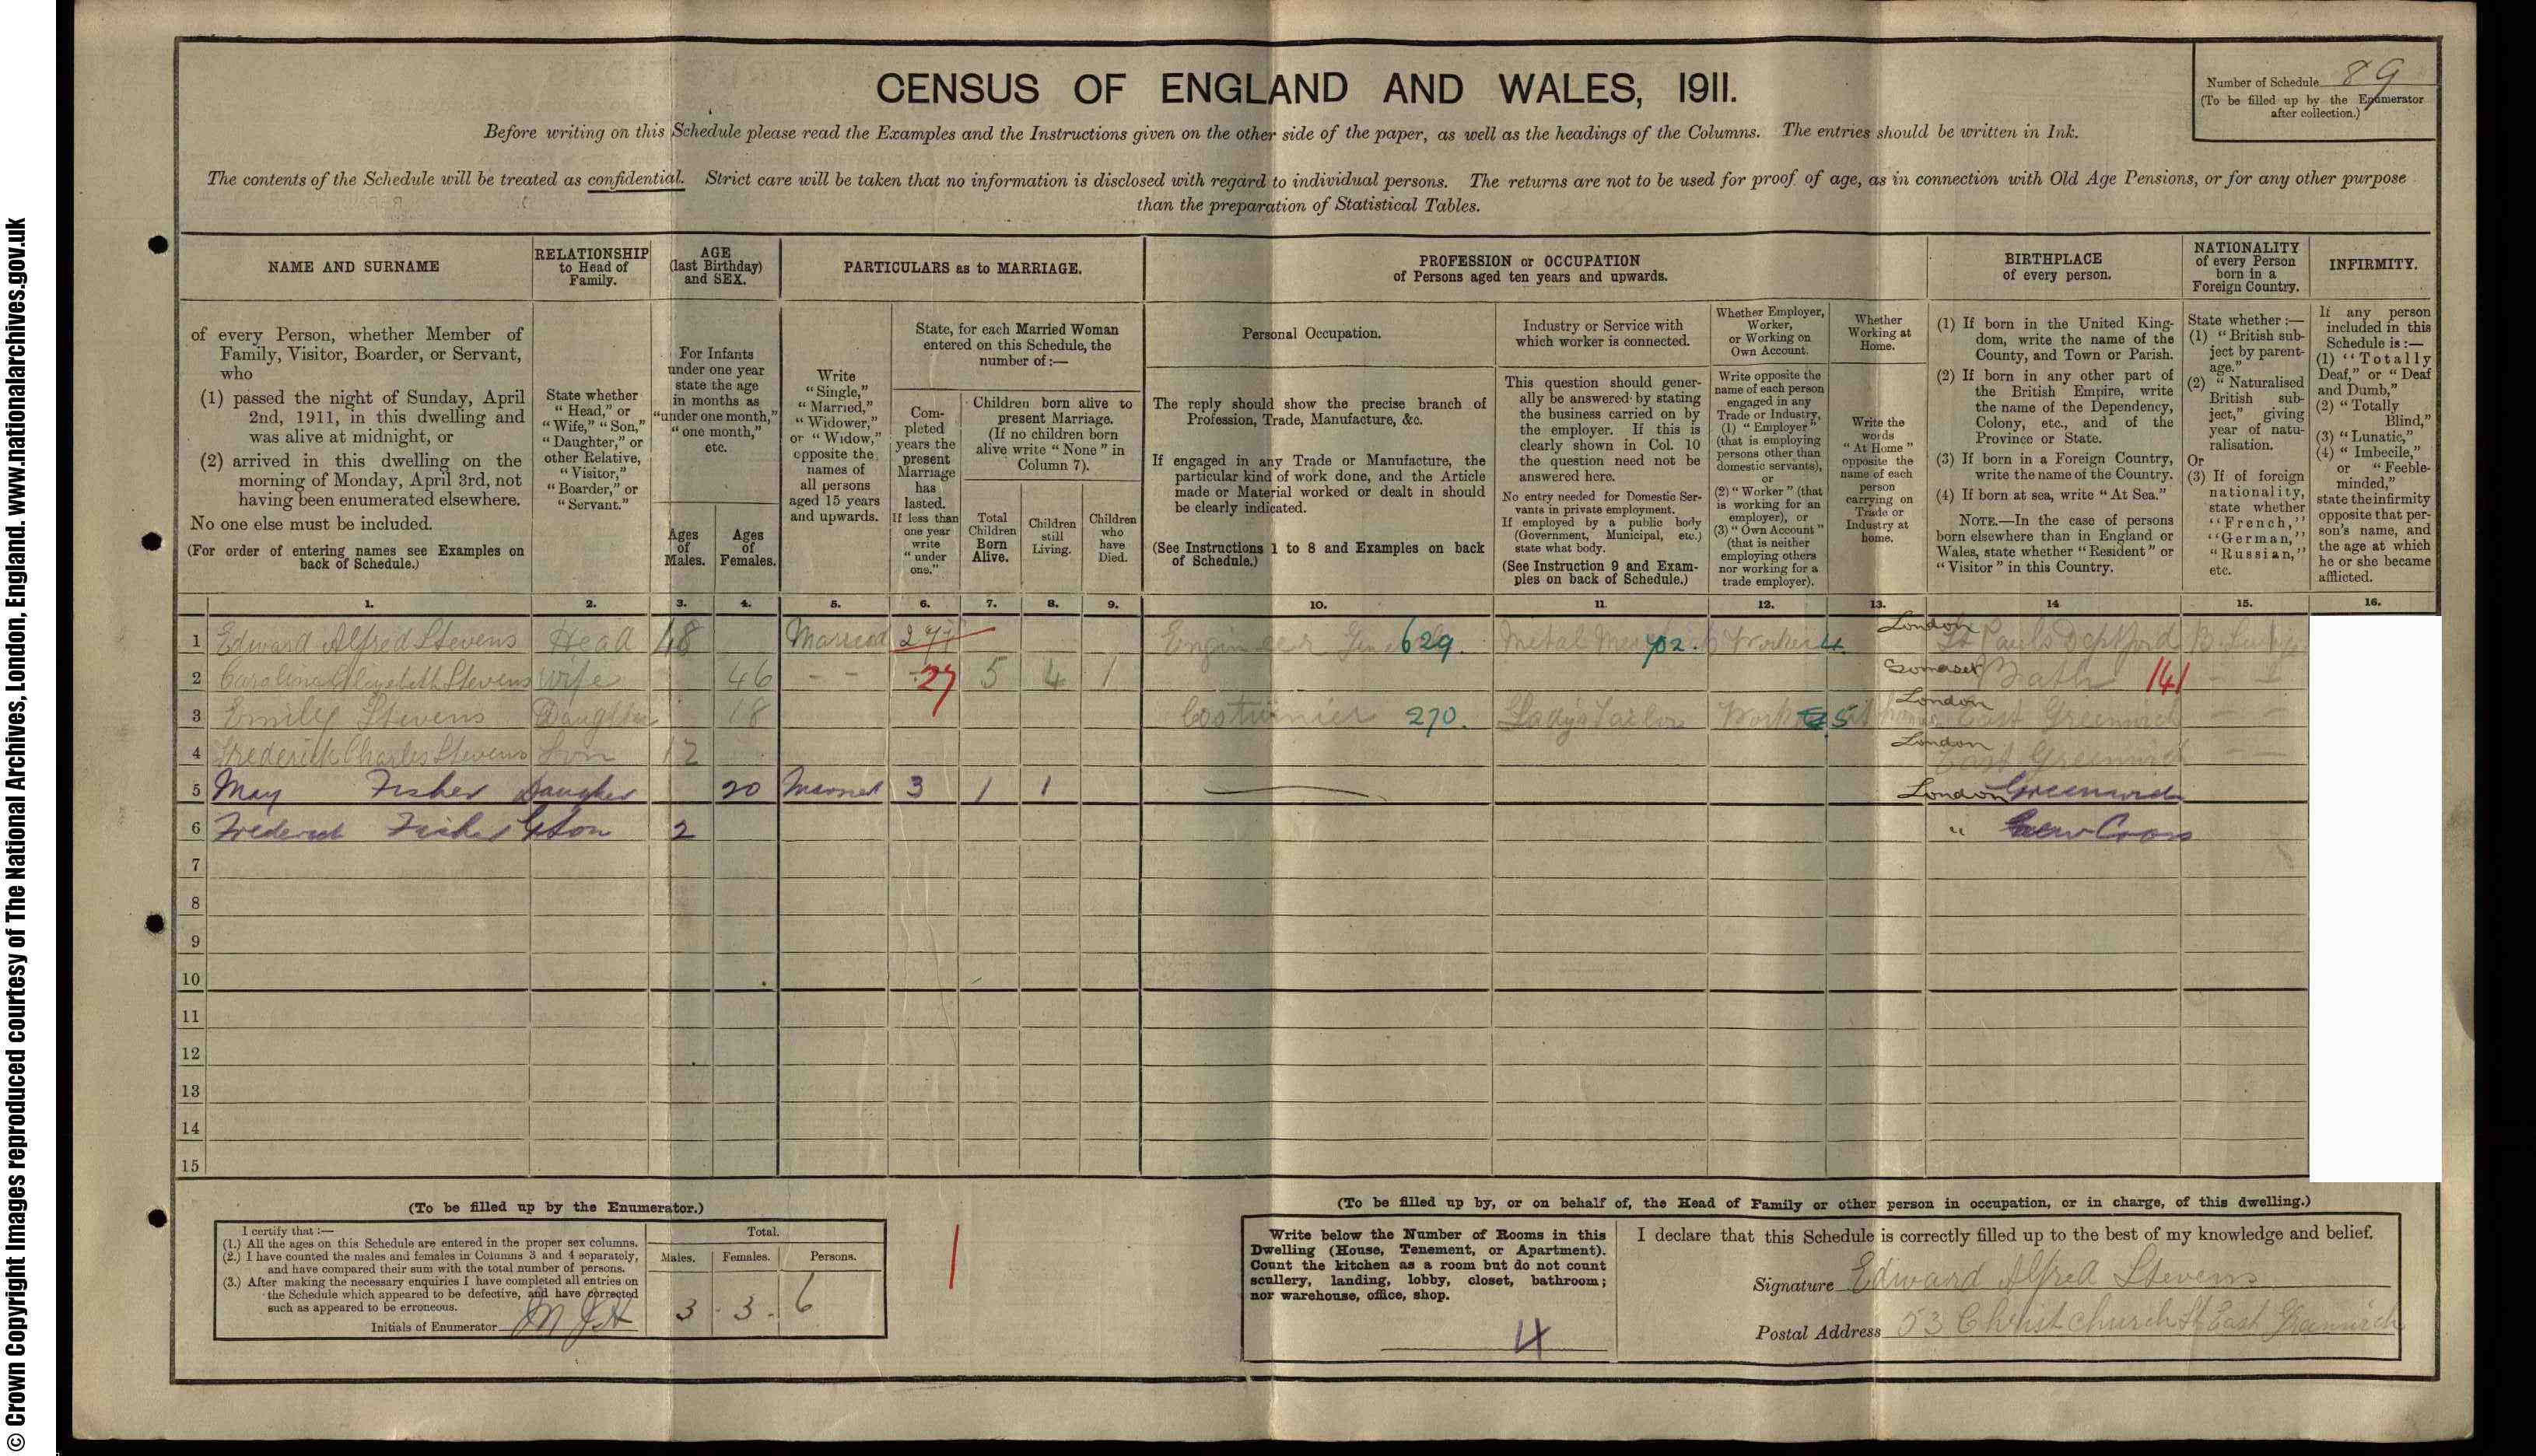 CENSUS OF ENGLAND AND WALES, 1911.
Number of Schedule 89
(To be filled up by the Enumerator
after collection.)
Before writing on this Schedule please read the Examples and the Instructions given on the other side of the paper, as well as the headings of the Columns. The entries should be written in Ink.
The contents of the Schedule will be treated as confidential. Strict care will be taken that no information is disclosed with regard to individual persons. The returns are not to be used for proof of age, as in connection with Old Age Pensions, or for any other purpose
than the preparation of Statistical Tables.
NAME AND SURNAME
of every Person, whether Member of
Family, Visitor, Boarder, or Servant,
who
(1) passed the night of Sunday, April
2nd, 1911, in this dwelling and
was alive at midnight, or
(2) arrived in this dwelling on the
morning of Monday, April 3rd, not
having been enumerated elsewhere.
No one else must be included.
(For order of entering names see Examples on
back of Schedule.)
RELATIONSHIP
to Head of
Family.
State whether
"Head," or
"Wife," "Son,"
"Daughter," or
other Relative,
"Visitor,"
"Boarder," or
"Servant."
AGE
(last Birthday)
and SEX.
For Infants
under one year
state the age
in months as
"under one month,"
"one month,"
etc.
Ages
of
Males.
Ages
of
Females.
PARTICULARS as to MARRIAGE.
Write
"Single,"
"Married,"
"Widower,"
or "Widow,"
opposite the
names of
all persons
aged 15 years
and upwards.
State, for each Married Woman
entered on this Schedule, the
number of:—
Com-
pleted
years the
present
Marriage
has
lasted.
If less than
one year
write
"under
one."
Children born alive to
present Marriage.
(If no children born
alive write "None" in
Column 7).
Total
Children
Born
Alive.
Children
still
Living.
Children
who
have
Died.
PROFESSION or OCCUPATION
of Persons aged ten years and upwards.
Personal Occupation.
The reply should show the precise branch of
Profession, Trade, Manufacture, &c.
If engaged in any Trade or Manufacture, the
particular kind of work done, and the Article
made or Material worked or dealt in should
be clearly indicated.
(See Instructions 1 to 8 and Examples on back
of Schedule.)
Industry or Service with
which worker is connected.
This question should gener-
ally be answered by stating
the business carried on by
the employer. If this is
clearly shown in Col. 10
the question need not be
answered here.
No entry needed for Domestic Ser-
vants in private employment.
If employed by a public body
(Government, Municipal, etc.)
state what body.
(See Instruction 9 and Exam-
ples on back of Schedule.)
Whether Employer,
Worker,
or Working on
Own Account.
Write opposite the
name of each person
engaged in any
Trade or Industry,
(1) "Employer"
(that is employing
persons other than
domestic servants),
or
(2) "Worker" (that
is working for an
employer), or
(3) "Own Account"
(that is neither
employing others
nor working for a
trade employer).
Whether
Working at
Home.
Write the
words
"At Home"
opposite the
name of each
person
carrying on
Trade or
Industry at
home.
BIRTHPLACE
of every person.
(1) If born in the United King-
dom, write the name of the
County, and Town or Parish.
(2) If born in any other part of
the British Empire, write
the name of the Dependency,
Colony, etc., and of the
Province or State.
(3) If born in a Foreign Country,
write the name of the Country.
(4) If born at sea, write "At Sea."
NOTE.—In the case of persons
born elsewhere than in England or
Wales, state whether "Resident" or
"Visitor" in this Country.
NATIONALITY
of every Person
born in a
Foreign Country.
State whether:—
(1) "British sub-
ject by parent-
age."
(2) "Naturalised
British sub-
ject," giving
year of natu-
ralisation.
Or
(3) If of foreign
nationality,
state whether
"French,"
"German,"
"Russian,"
etc.
INFIRMITY.
If any person
included in this
Schedule is:—
(1) "Totally
Deaf," or "Deaf
and Dumb,"
(2) "Totally
Blind,"
(3) "Lunatic,"
(4) "Imbecile,"
or "Feeble-
minded,"
state the infirmity
opposite that per-
son's name, and
the age at which
he or she became
afflicted.
1. 2. 3. 4. 5. 6. 7. 8. 9. 10. 11. 12. 13. 14. 15. 16.
1 Edward Alfred Stevens Head 48 Married 27 Engineer 629. Metal Worker London St Pauls Deptford
2 Caroline Elizabeth Stevens Wife 46 - - 27 5 4 1 Somerset Bath 141
3 Emily Stevens Daughter 18 Costumier 270. Lady's Tailor Worker 5 London East Greenwich
4 Frederick Charles Stevens Son 12 London East Greenwich
5 May Fisher Daughter 20 Married 3 1 1 London Greenwich
6 Frederick Fisher G Son 2 " New Cross
7
8
9
10
11
12
13
14
15
(To be filled up by the Enumerator.)
I certify that:—
(1.) All the ages on this Schedule are entered in the proper sex columns.
(2.) I have counted the males and females in Columns 3 and 4 separately,
and have compared their sum with the total number of persons.
(3.) After making the necessary enquiries I have completed all entries on
the Schedule which appeared to be defective, and have corrected
such as appeared to be erroneous.
Initials of Enumerator
Total.
Males. Females. Persons.
3 3 6
(To be filled up by, or on behalf of, the Head of Family or other person in occupation, or in charge, of this dwelling.)
Write below the Number of Rooms in this
Dwelling (House, Tenement, or Apartment).
Count the kitchen as a room but do not count
scullery, landing, lobby, closet, bathroom;
nor warehouse, office, shop.
4
I declare that this Schedule is correctly filled up to the best of my knowledge and belief.
Signature Edward Alfred Stevens
Postal Address 53 Christchurch St East Greenwich
© Crown Copyright Images reproduced courtesy of The National Archives, London, England. www.nationalarchives.gov.uk